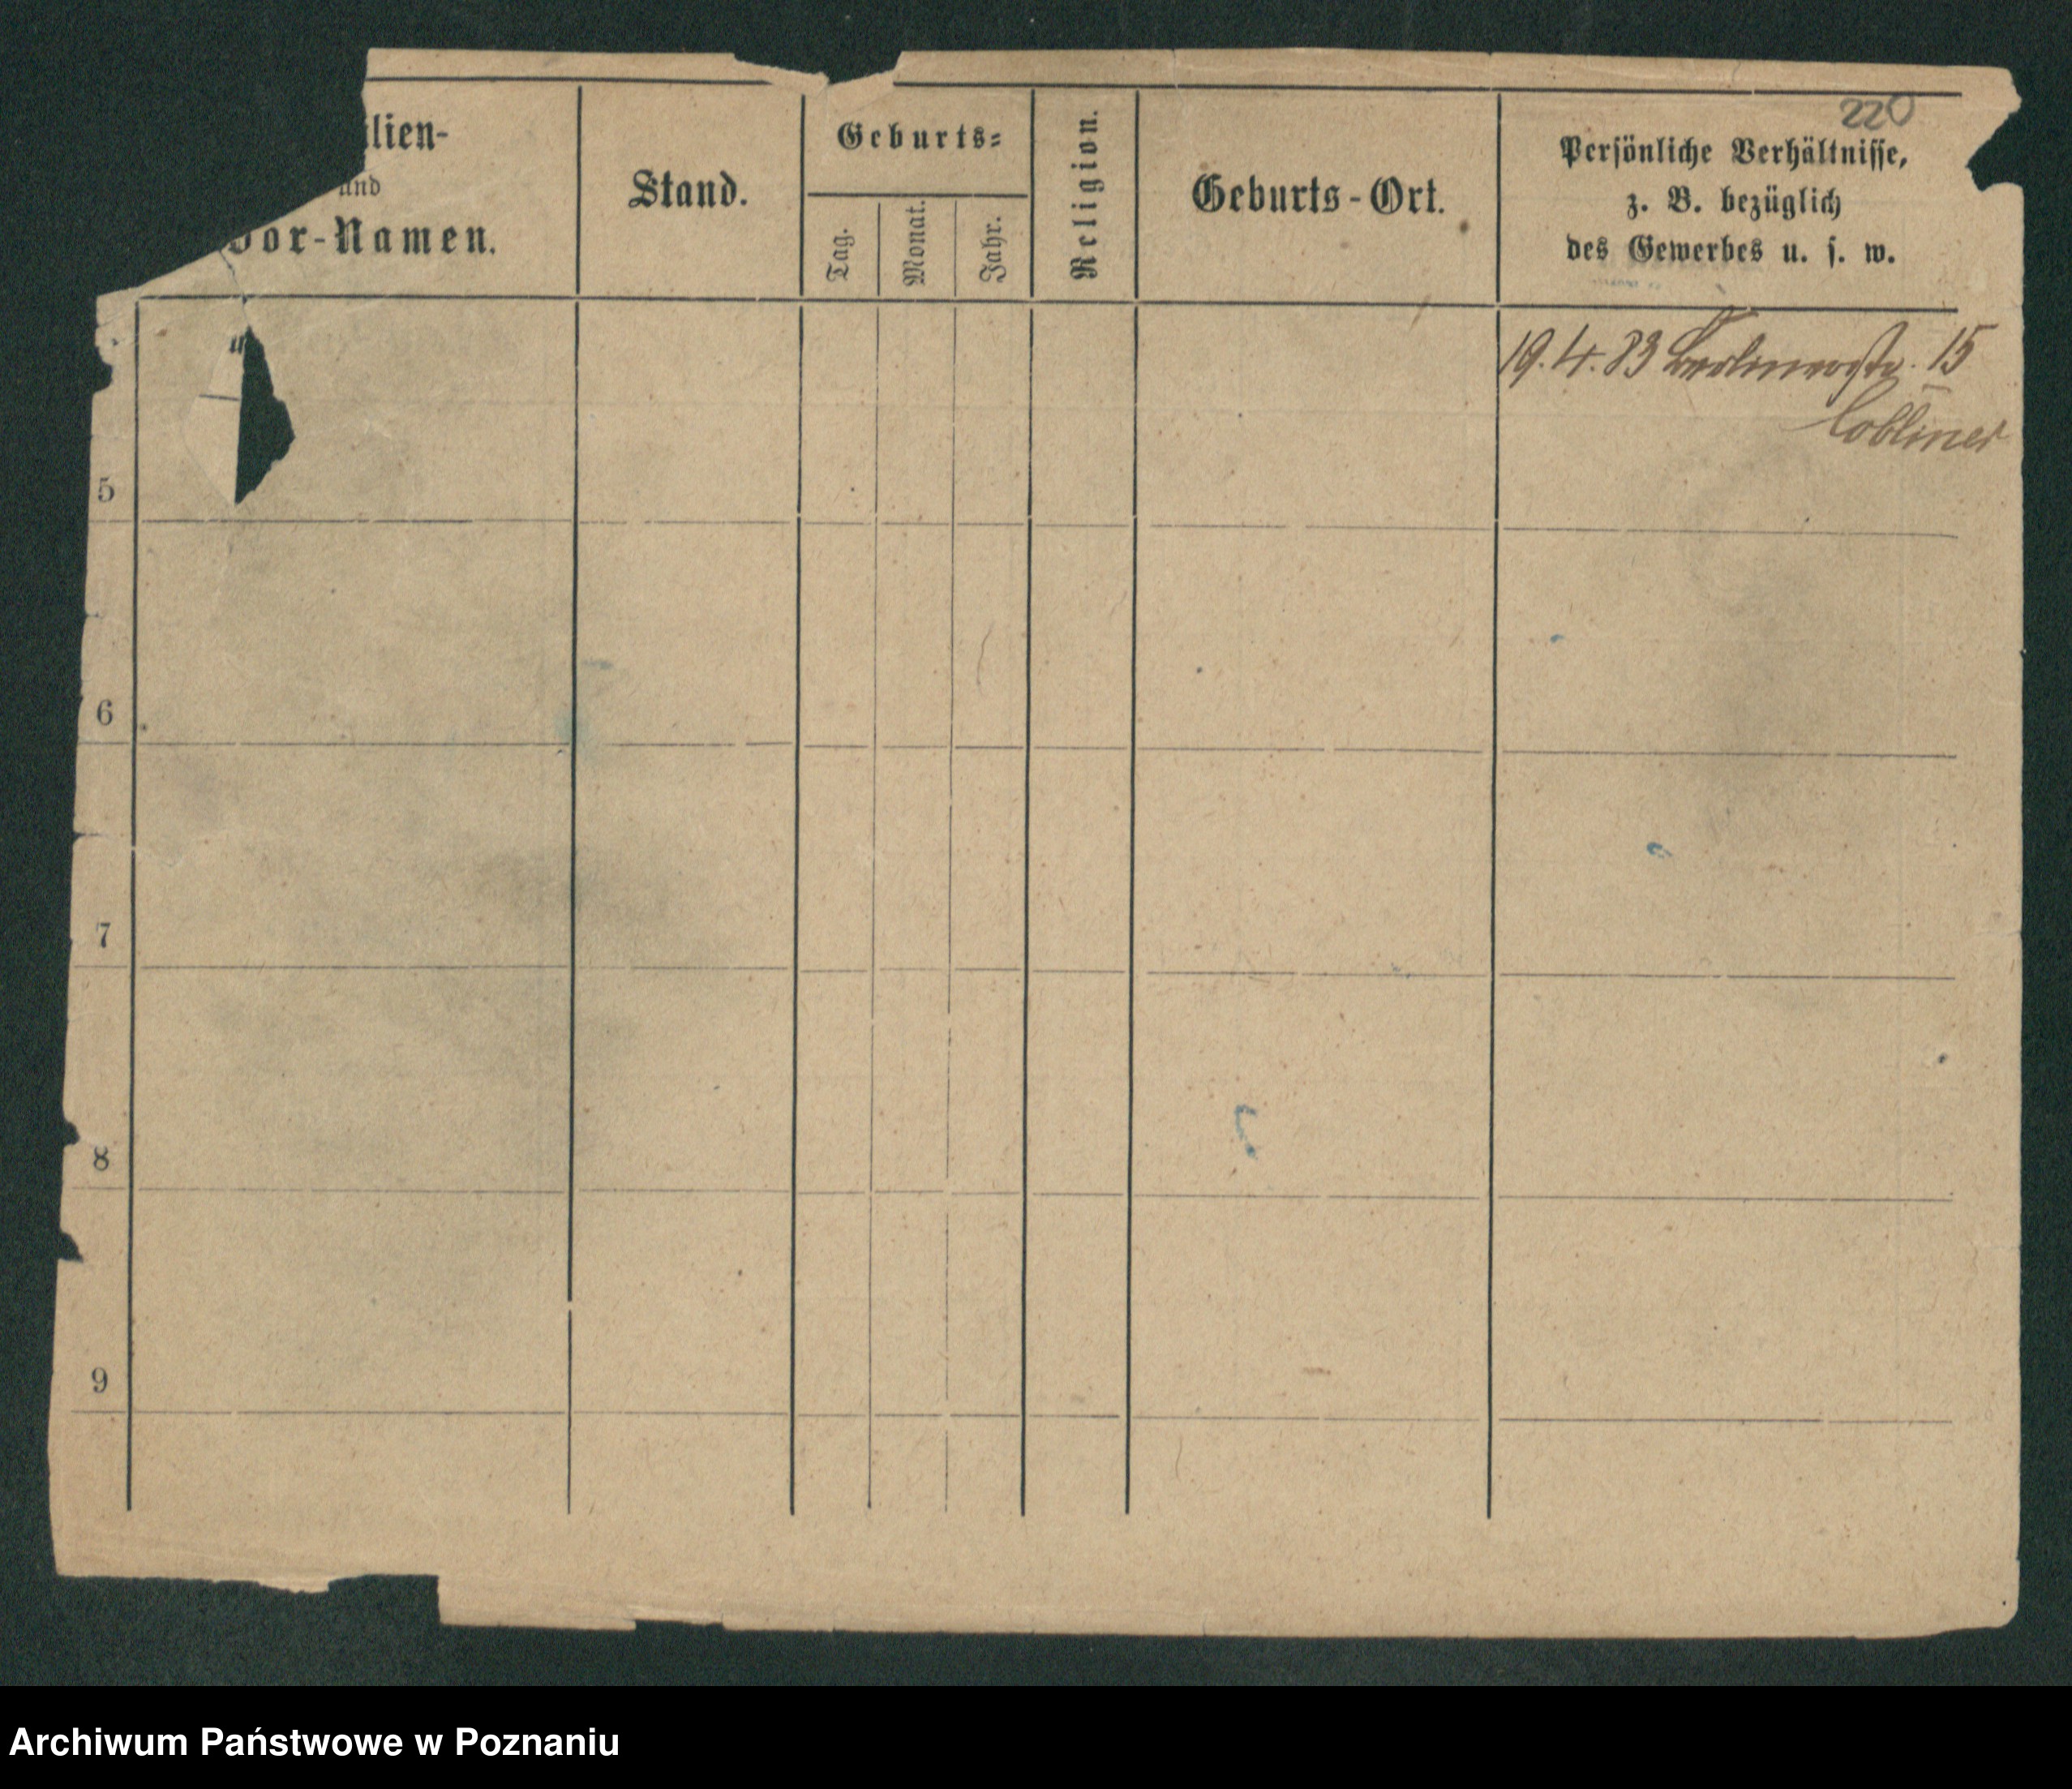 220
ilien-
und
Vor-Namen.
Stand.
Geburts-
Tag.
Monat.
Jahr.
Religion.
Geburts-Ort.
Persönliche Verhältnisse,
z. B. bezüglich
des Gewerbes u. s. w.
19.4.83 Berlinerstr. 15
Cobliner
5
6
7
8
9
Archiwum Państwowe w Poznaniu